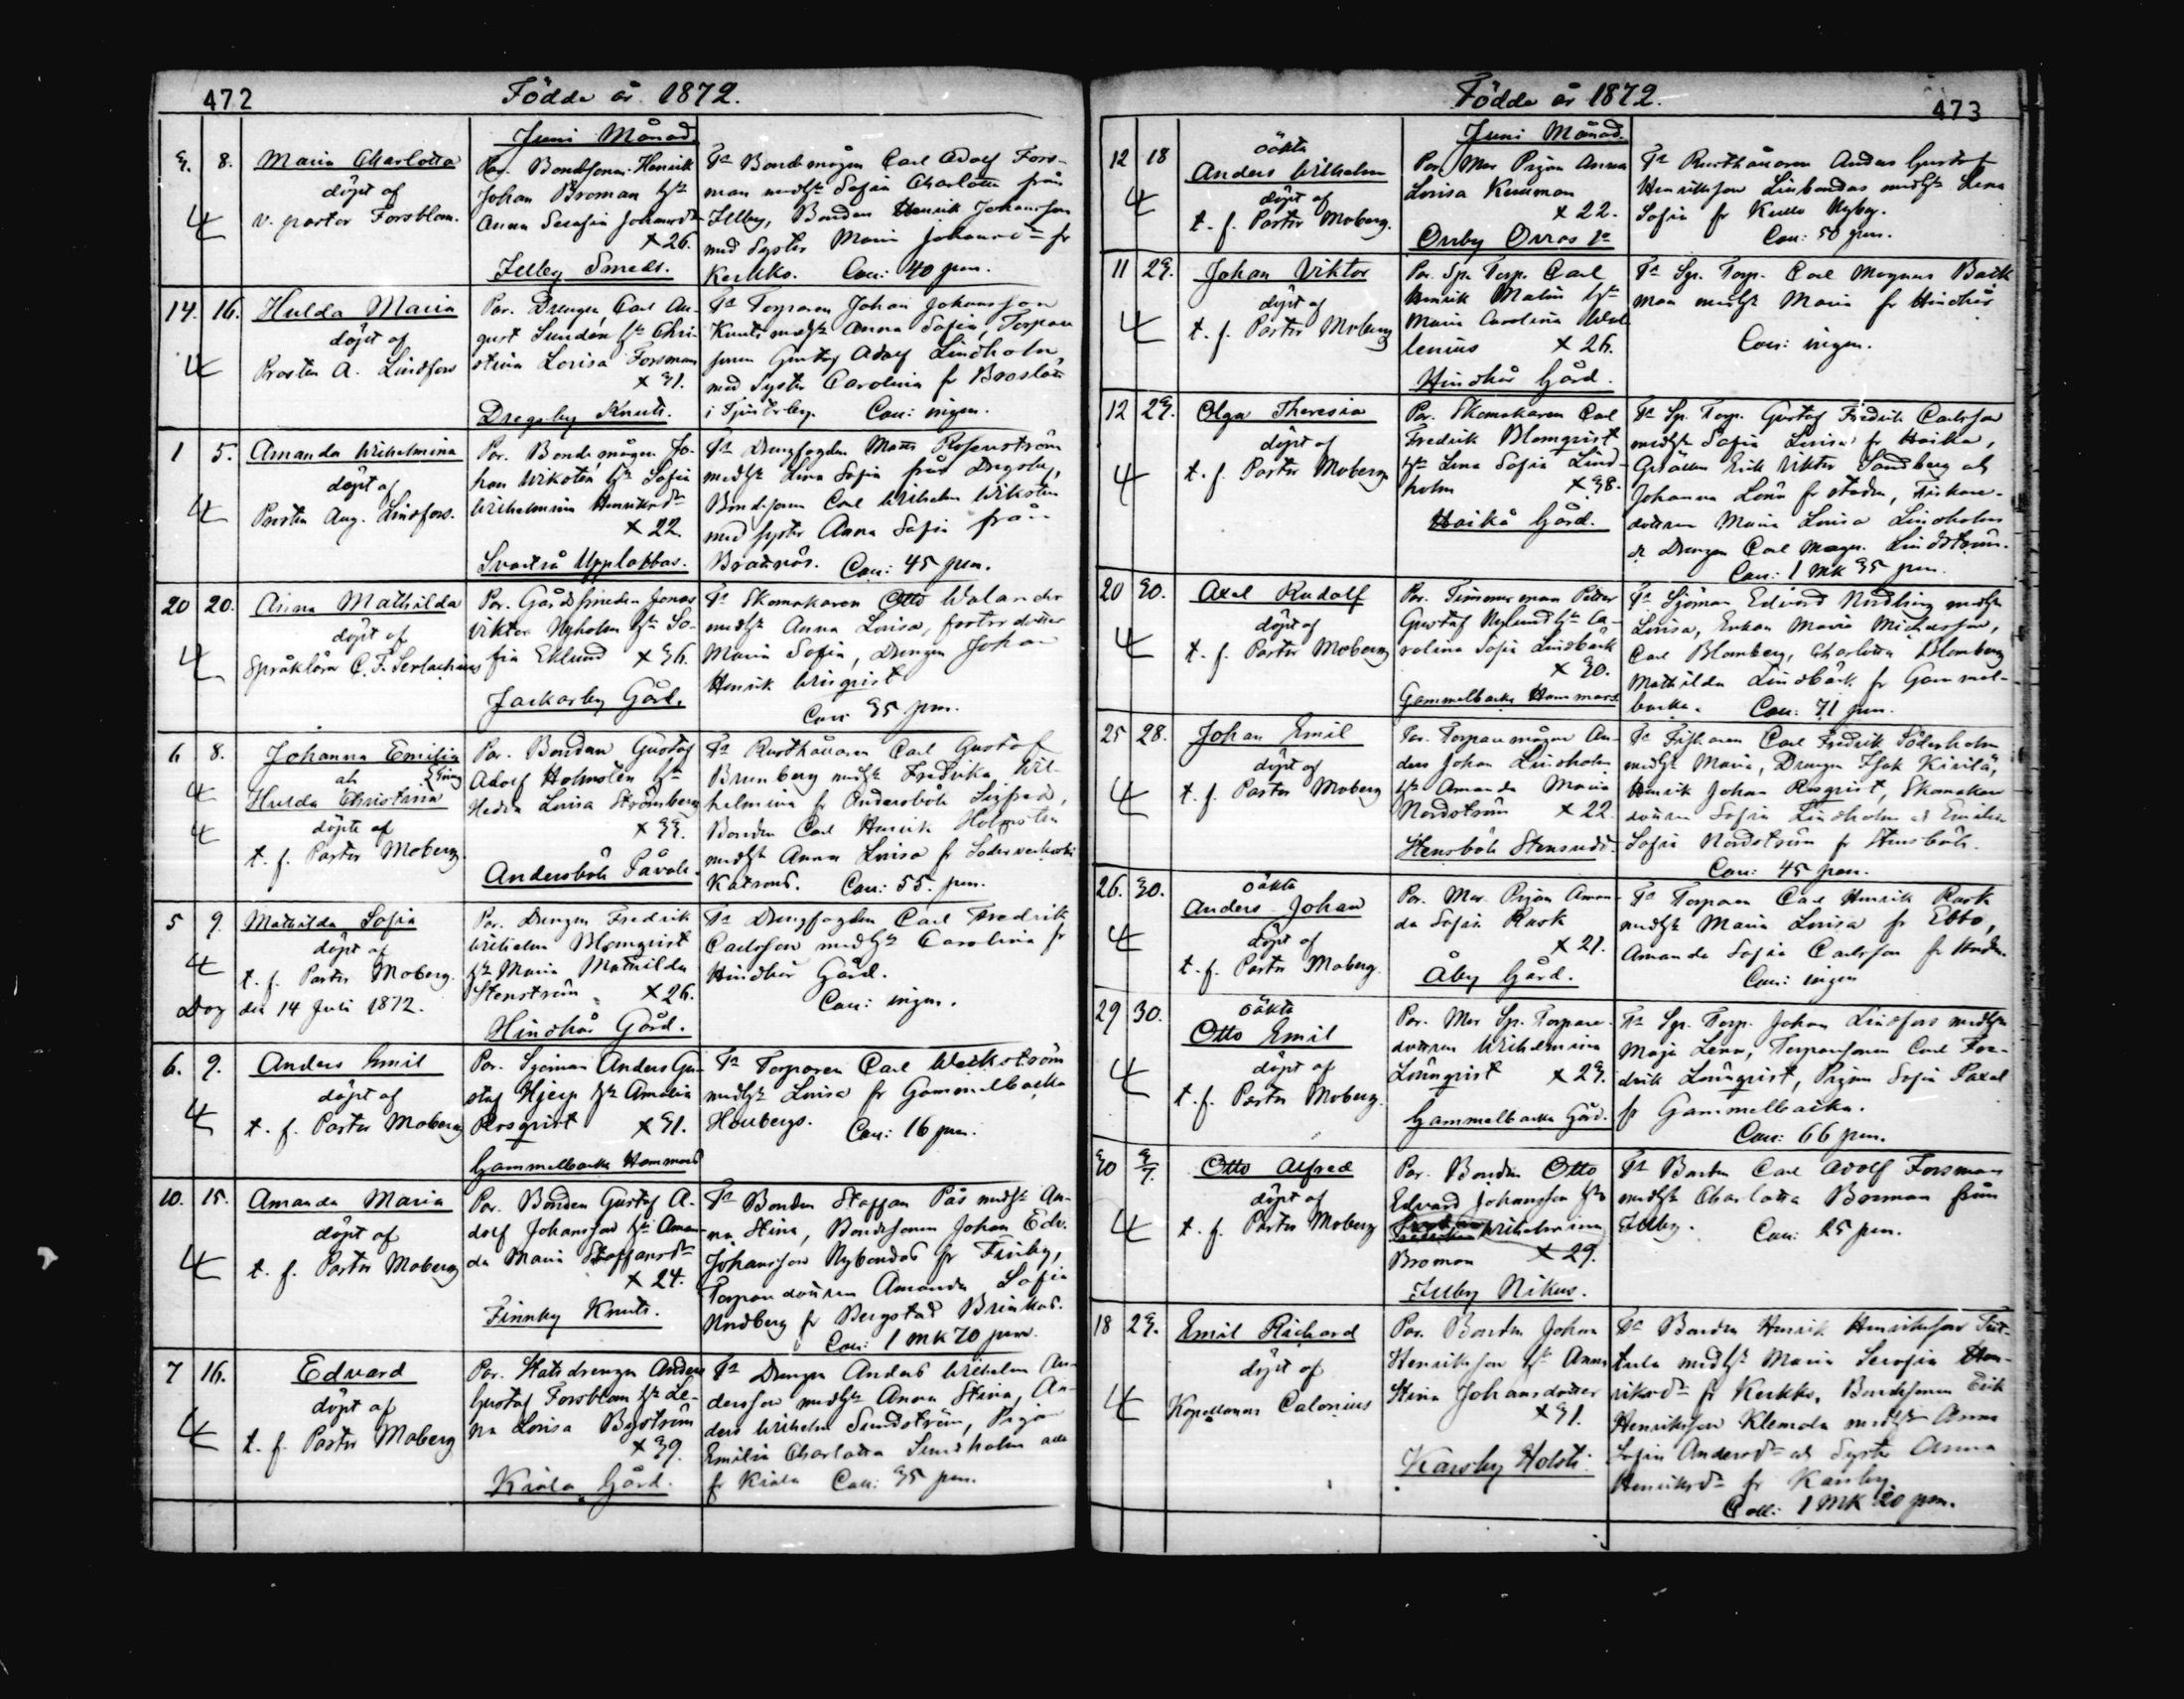 472
Födda år 1872.
Juni Månad
3. 8. Maria Charlotta
döpt af
v. pastor Forsblom.
Par. Bondesonen Henrik
Johan Broman hu
Anna Serafia Johansdr
x 26.
Illby Smeds.
Fa Bondemågen Carl Adolf Fors-
man med hu Sofia Charlotta från
Illby, Bonden Henrik Johansson
med Syster Maria Johansdr fr
Kerkko. Coll: 40 pen.
14. 16. Hulda Maria
döpt af
Prosten A. Lindfors
Par. Drengen Carl Au-
gust Sundén hu Chri-
stina Lovisa Forsman
x 31.
Dregsby Knuts.
Fa Torparen Johan Johansson
Knuts med hu Anna Sofia, Torpare
sonen Gustaf Adolf Lindholm,
med Syster Carolina fr
i Tjusterby. Coll: ingen.
1 5. Amanda Wilhelmina
döpt af
Prosten Aug. Lindfors.
Par. Bondemågen Jo-
han Wikstén hu Sofia
Wilhelmina Henriksdr
x 22.
Svartså Upplobbas.
Fa Drengfogden Matts Rosenström
med hu Lina Sofia från Dregsby,
Bondesonen Carl Wilhelm Wikstén
med syster Anna Sofia från
Brattnäs. Coll: 45 pen.
20 20. Anna Mathilda
döpt af
Språklärn C. F. Serlachius
Par. Gårdssmeden Jonas
Viktor Nyholm hu So-
fia Eklund x 36.
Jackarby Gård.
Fa Skomakaren Otto Walander
med hu Anna Lovisa, fosterdotter
Maria Sofia, Drengen Johan
Henrik Wisqvist
Coll: 35 pen.
6 8. Johanna Emilia
ah
Hulda Christina
döpte af
t. f. Pastor Moberg.
Par. Bonden Gustaf
Adolf Holmstén hu
Hedda Lovisa Strömberg
x 33.
Andersböle Påvals.
Fa Rusthållaren Carl Gustaf
Brunberg med hu Fredrika Wil-
helmina fr Andersböle Sigfreds,
Bonden Carl Henrik Holmstén
med hu Anna Lovisa fr Söderveckoski
Katrends. Coll: 55. pen.
5 9. Mathilda Sofia
döpt af
t. f. Pastor Moberg.
Dog den 14 Juli 1872.
Par. Drengen Fredrik
Wilhelm Blomqvist
hu Maria Mathilda
Stenström x 26.
Hindhår Gård.
Fa Drengfogden Carl Fredrik
Carlsson med hu Carolina fr
Hindhår Gård.
Coll: ingen.
6. 9. Anders Emil
döpt af
t. f. Pastor Moberg
Par. Sjöman Anders Gu-
staf Hjerp hu Amalia
Rosqvist x 31.
Gammelbacka Hommans
Fa Torparen Carl Weckström
med hu Lovisa fr Gammelbacka
Coll: 16 pen.
10. 15. Amanda Maria
döpt af
t. f. Pastor Moberg
Par. Bonden Gustaf A-
dolf Johansson hu Aman-
da Maria Staffansdr
x 24.
Finnby Knuts.
Fa Bonden Staffan Pås med hu An-
na Stina, Bondesonen Johan Edv.
Johansson Nybondas fr Finby,
Torparedottren Amanda Sofia
Nordberg fr Bergstad Brinkas.
Coll: 1 mk 70 pen.
7 16. Edvard
döpt af
t. f. Pastor Moberg
Par. Statsdrengen Anders
Gustaf Forsblom hu Le-
na Lovisa Byström
x 39.
Kiala Gård.
Fa Drengen Anders Wilhelm An-
dersson med hu Anna Stina, An-
ders Wilhelm Sundström, Pigan
Emilia Charlotta Sundholm alla
fr Kiala Coll: 35 pen.
Födda år 1872.
473
Juni Månad.
12 18 oäkta
Anders Wilhelm
döpt af
t. f. Pastor Moberg.
Par. Mor Pigan Anna
Lovisa Kullman
x 22.
Orrby Orras
Fa Rusthållaren Anders Gustaf
Henriksson Linbondas med hu Lena
Sofia fr Kullo Nyby.
Coll: 50 pen.
11 23. Johan Viktor
döpt af
t. f. Pastor Moberg
Par. Sp. Torp. Carl
Henrik Malin hu
Maria Carolina Wal-
lenius x 26.
Hindhår Gård.
Fa Sp. Torp. Carl Magnus Back
man med hu Maria fr Hindhår
Coll: ingen.
12 23. Olga Theresia
döpt af
t. f. Pastor Moberg
Par. Skomakaren Carl
Fredrik Blomqvist
hu Lena Sofia Lind-
holm x 38.
Haikå Gård.
Fa Sp. Torp. Gustaf Fredrik Carlsson
med hu Sofia Lovisa fr Haika,
Gesällen Erik Viktor Sandberg ah
Johanna Lönn fr staden, Fiskare-
dottren Maria Lovisa Lindholm
o Drengen Carl Magn. Lindström.
Coll: 1 mk 35 pen.
20 30. Axel Rudolf
döpt af
t. f. Pastor Moberg
Par. Timmerman Petter
Gustaf Nylund hu Ca-
rolina Sofia Lindbäck
x 30.
Gammelbacka Hommans
Fa Sjöman Edvard Nedling med hu
Lovisa, Enkan Maria Michelsson,
Carl Blomberg, Charlotta Blomberg
Mathilda Lindbäck fr Gammel-
backa. Coll: 71 pen.
25 28. Johan Emil
döpt af
t. f. Pastor Moberg
Par. Torparemågen An-
ders Johan Lindholm
hu Amanda Maria
Nordström x 22
Stensböle Stensudd.
Fa Fiskaren Carl Fredrik Söderholm
med hu Maria, Drengen Isak Kivilä,
Henrik Johan Rosqvist, Skomakare
dottren Sofia Lindholm o Emilia
Sofia Nordström fr Stensböle.
Coll: 45 pen.
26. 30. oäkta
Anders Johan
döpt af
t. f. Pastor Moberg.
Par. Mor Pigan Aman-
da Sofia Rask
x 21.
Åby Gård.
Fa Torparen Carl Henrik Rask
med hu Maria Lovisa fr Ebbo,
Amanda Sofia Carlsson fr
Coll: ingen
29 30. oäkta
Otto Emil
döpt af
t. f. Pastor Moberg.
Par. Mor Sp. Torpare-
dottren Wilhelmina
Lönnqvist x 23.
Gammelbacka Gård.
Fa Sp. Torp. Johan Lindfors med hu
Maja Lena, Torparesonen Carl Fre-
drik Lönnqvist, Pigan Sofia Paxal
fr Gammelbacka.
Coll: 66 pen.
30 3/7 Otto Alfred
döpt af
t. f. Pastor Moberg
Par. Bonden Otto
Edvard Johansson hu
Wilhelmina
Broman x 29.
Illby Nikus.
Fa Bonden Carl Adolf Forsman
med hu Charlotta Broman från
Illby. Coll: 25 pen.
18 23. Emil Richard
döpt af
Kapellanen Calonius
Par. Bonden Johan
Henriksson hu Anna
Stina Johansdotter
x 31.
Karsby Holsti.
Fa Bonden Henrik Henriksson
med hu Maria Serafia Hen-
riksdr fr Kerkko, Bondesonen Erik
Henriksson Klemola med hu Anna
Sofia Andersdr ah Syster Anna
Henriksdr fr Karsby
Coll: 1 mk 20 pen.